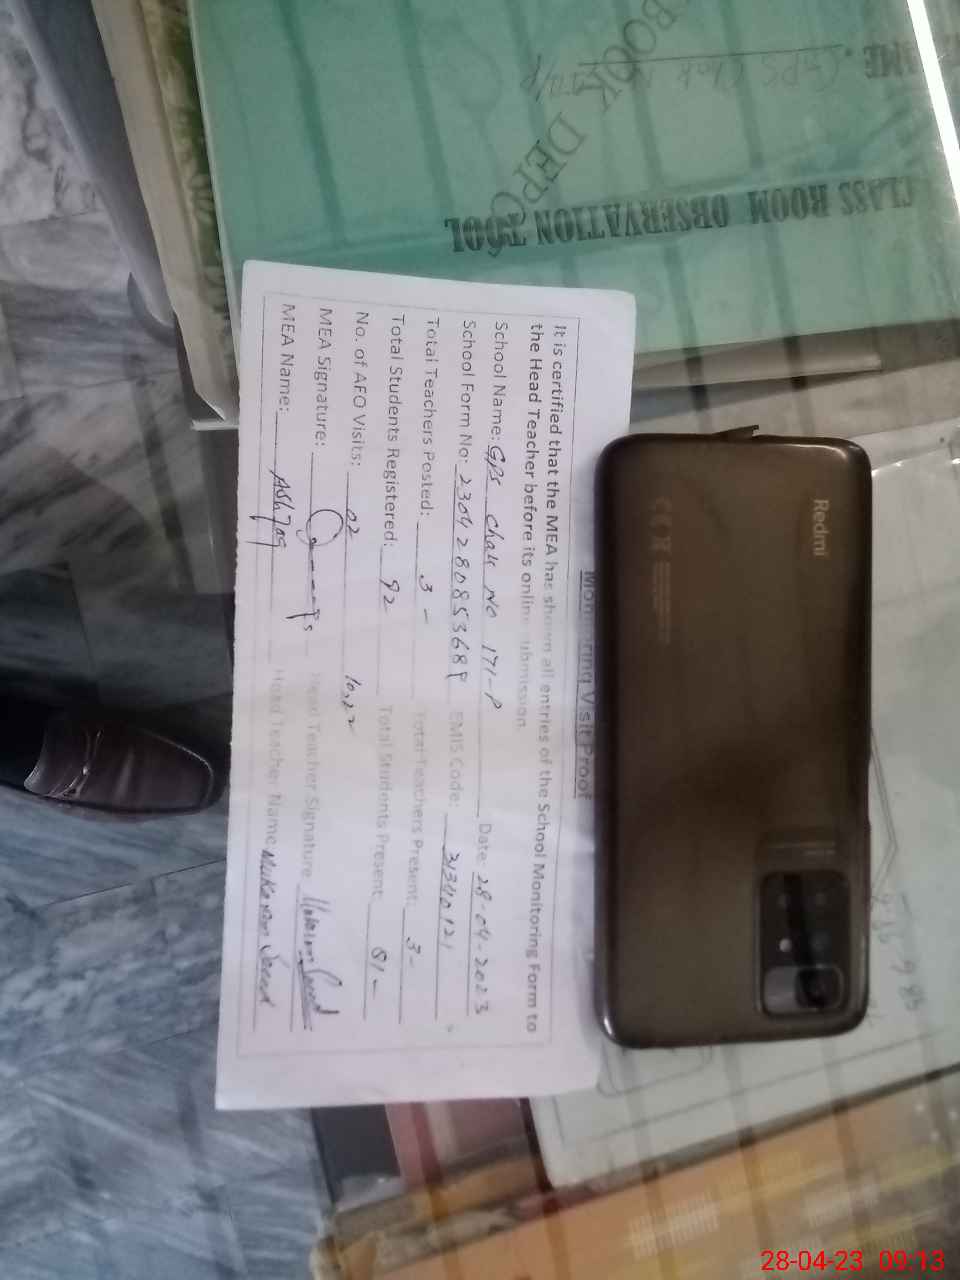 BOOK DEPO
CLASS ROOM OBSERVATION TOOL
Redmi
Monitoring Visit Proof
It is certified that the MEA has shown all entries of the School Monitoring Form to
the Head Teacher before its online submission.
School Name: GPS Chak No 171-P Date: 28-04-2023
School Form No: EMIS Code: 31340121
Total Teachers Posted: 3 - Total Teachers Present: 3 -
Total Students Registered: 92 Total Students Present: 81 -
No. of AFO Visits: 02
MEA Signature: Head Teacher Signature
MEA Name: Ashfaq Head Teacher Name:
28-04-23 09:13